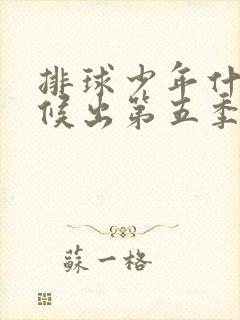 排球少年什
候出第五季
蘇一格